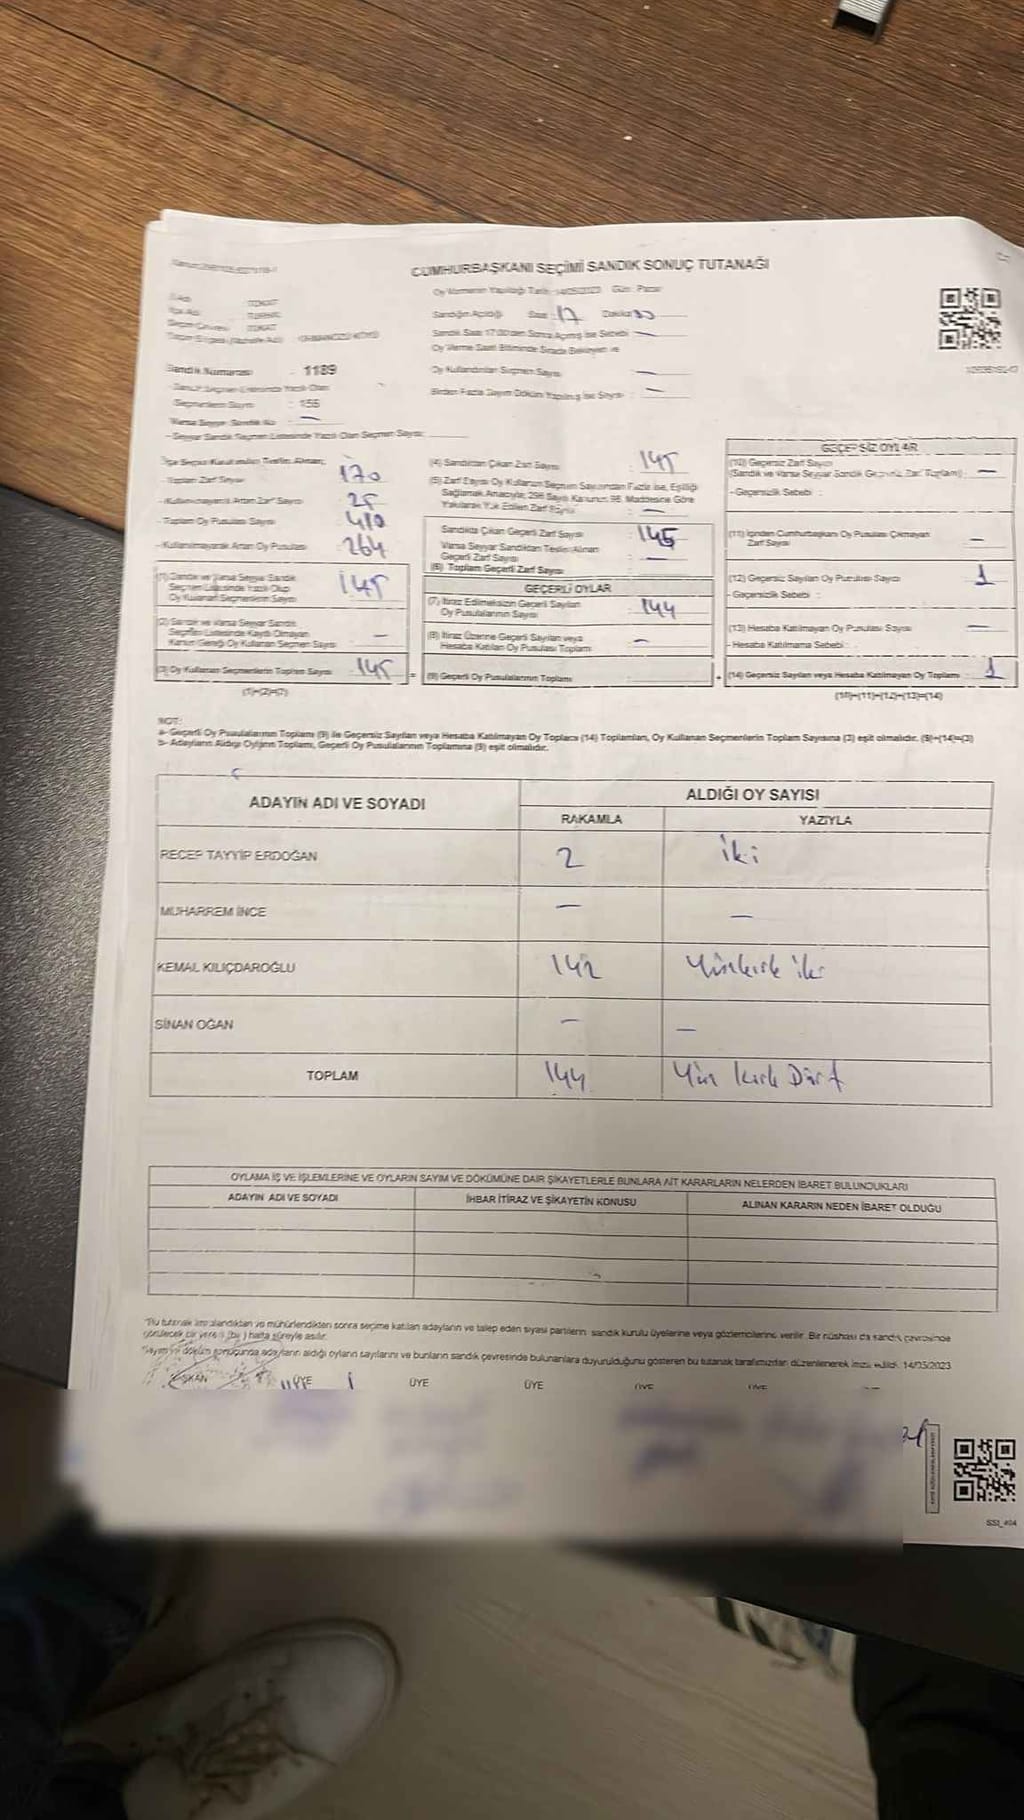 CUMHURBAŞKANI SEÇİMİ SANDIK SONUÇ TUTANAĞI
Oy Vermenin Yapıldığı Tarih : 14/05/2023 Gün : Pazar
TOKAT
TURHAL
TOKAT
Sandığın Açıldığı Saat : 17 Dakika
Sandık Saat 17:00'den Sonra Açılmış İse Sebebi : —
Oy Verme Saati Bitiminde Sırada Bekleyen ve
Oy Kullandırılan Seçmen Sayısı : —
Birden Fazla Sayım Döküm Yapılmış İse Sayısı : —
Sandık Numarası : 1189
Sandık Seçmen Listesinde Yazılı Olan
Seçmenlerin Sayısı : 156
Varsa Seyyar Sandık No : —
- Seyyar Sandık Seçmen Listesinde Yazılı Olan Seçmen Sayısı :
İlçe Seçim Kurulundan Teslim Alınan;
- Toplam Zarf Sayısı : 170
- Kullanılmayarak Artan Zarf Sayısı : 25
- Toplam Oy Pusulası Sayısı : 410
- Kullanılmayarak Artan Oy Pusulası : 264
(1) Sandık ve Varsa Seyyar Sandık
Seçmen Listesinde Yazılı Olup
Oy Kullanan Seçmenlerin Sayısı : 145
(2) Sandık ve Varsa Seyyar Sandık
Seçmen Listesinde Kaydı Olmayan
Kanun Gereği Oy Kullanan Seçmen Sayısı : —
(3) Oy Kullanan Seçmenlerin Toplam Sayısı : 145
(1)+(2)=(3)
(4) Sandıktan Çıkan Zarf Sayısı : 145
(5) Zarf Sayısı Oy Kullanan Seçmen Sayısından Fazla ise, Eşitliği
Sağlamak Amacıyla, 298 Sayılı Kanunun 98. Maddesine Göre
Yakılarak Yok Edilen Zarf Sayısı : —
Sandıkta Çıkan Geçerli Zarf Sayısı : 145
Varsa Seyyar Sandıktan Teslim Alınan
Geçerli Zarf Sayısı : —
(6) Toplam Geçerli Zarf Sayısı :
GEÇERLİ OYLAR
(7) İtiraz Edilmeksizin Geçerli Sayılan
Oy Pusulalarının Sayısı : 144
(8) İtiraz Üzerine Geçerli Sayılan veya
Hesaba Katılan Oy Pusulası Toplamı : —
(9) Geçerli Oy Pusulalarının Toplamı :
GEÇERSİZ OYLAR
(10) Geçersiz Zarf Sayısı
(Sandık ve Varsa Seyyar Sandık Geçersiz Zarf Toplamı) : —
- Geçersizlik Sebebi :
(11) İçinden Cumhurbaşkanı Oy Pusulası Çıkmayan
Zarf Sayısı : —
(12) Geçersiz Sayılan Oy Pusulası Sayısı : 1
- Geçersizlik Sebebi :
(13) Hesaba Katılmayan Oy Pusulası Sayısı : —
- Hesaba Katılmama Sebebi :
(14) Geçersiz Sayılan veya Hesaba Katılmayan Oy Toplamı : 1
(10)+(11)+(12)+(13)=(14)
NOT:
a- Geçerli Oy Pusulalarının Toplamı (9) ile Geçersiz Sayılan veya Hesaba Katılmayan Oy Toplamı (14) Toplamları, Oy Kullanan Seçmenlerin Toplam Sayısına (3) eşit olmalıdır. (9)+(14)=(3)
b- Adayların Aldığı Oyların Toplamı, Geçerli Oy Pusulalarının Toplamına (9) eşit olmalıdır.
ADAYIN ADI VE SOYADI
ALDIĞI OY SAYISI
RAKAMLA YAZIYLA
RECEP TAYYİP ERDOĞAN 2 iki
MUHARREM İNCE — —
KEMAL KILIÇDAROĞLU 142 Yüzkırk iki
SİNAN OĞAN — —
TOPLAM 144 Yüz kırk Dört
OYLAMA İŞ VE İŞLEMLERİNE VE OYLARIN SAYIM VE DÖKÜMÜNE DAİR ŞİKAYETLERLE BUNLARA AİT KARARLARIN NELERDEN İBARET BULUNDUKLARI
ADAYIN ADI VE SOYADI İHBAR İTİRAZ VE ŞİKAYETİN KONUSU ALINAN KARARIN NEDEN İBARET OLDUĞU
"Bu tutanak imzalandıktan ve mühürlendikten sonra seçime katılan adayların ve talep eden siyasi partilerin sandık kurulu üyelerine veya gözlemcilerine verilir. Bir nüshası da sandık çevresinde
görülecek bir yere (bir) hafta süreyle asılır.
Sayım ve döküm sonucunda adayların aldığı oyların sayılarını ve bunların sandık çevresinde bulunanlara duyurulduğunu gösteren bu tutanak tarafımızdan düzenlenerek imza edildi. 14/05/2023
BAŞKAN ÜYE ÜYE ÜYE ÜYE ÜYE